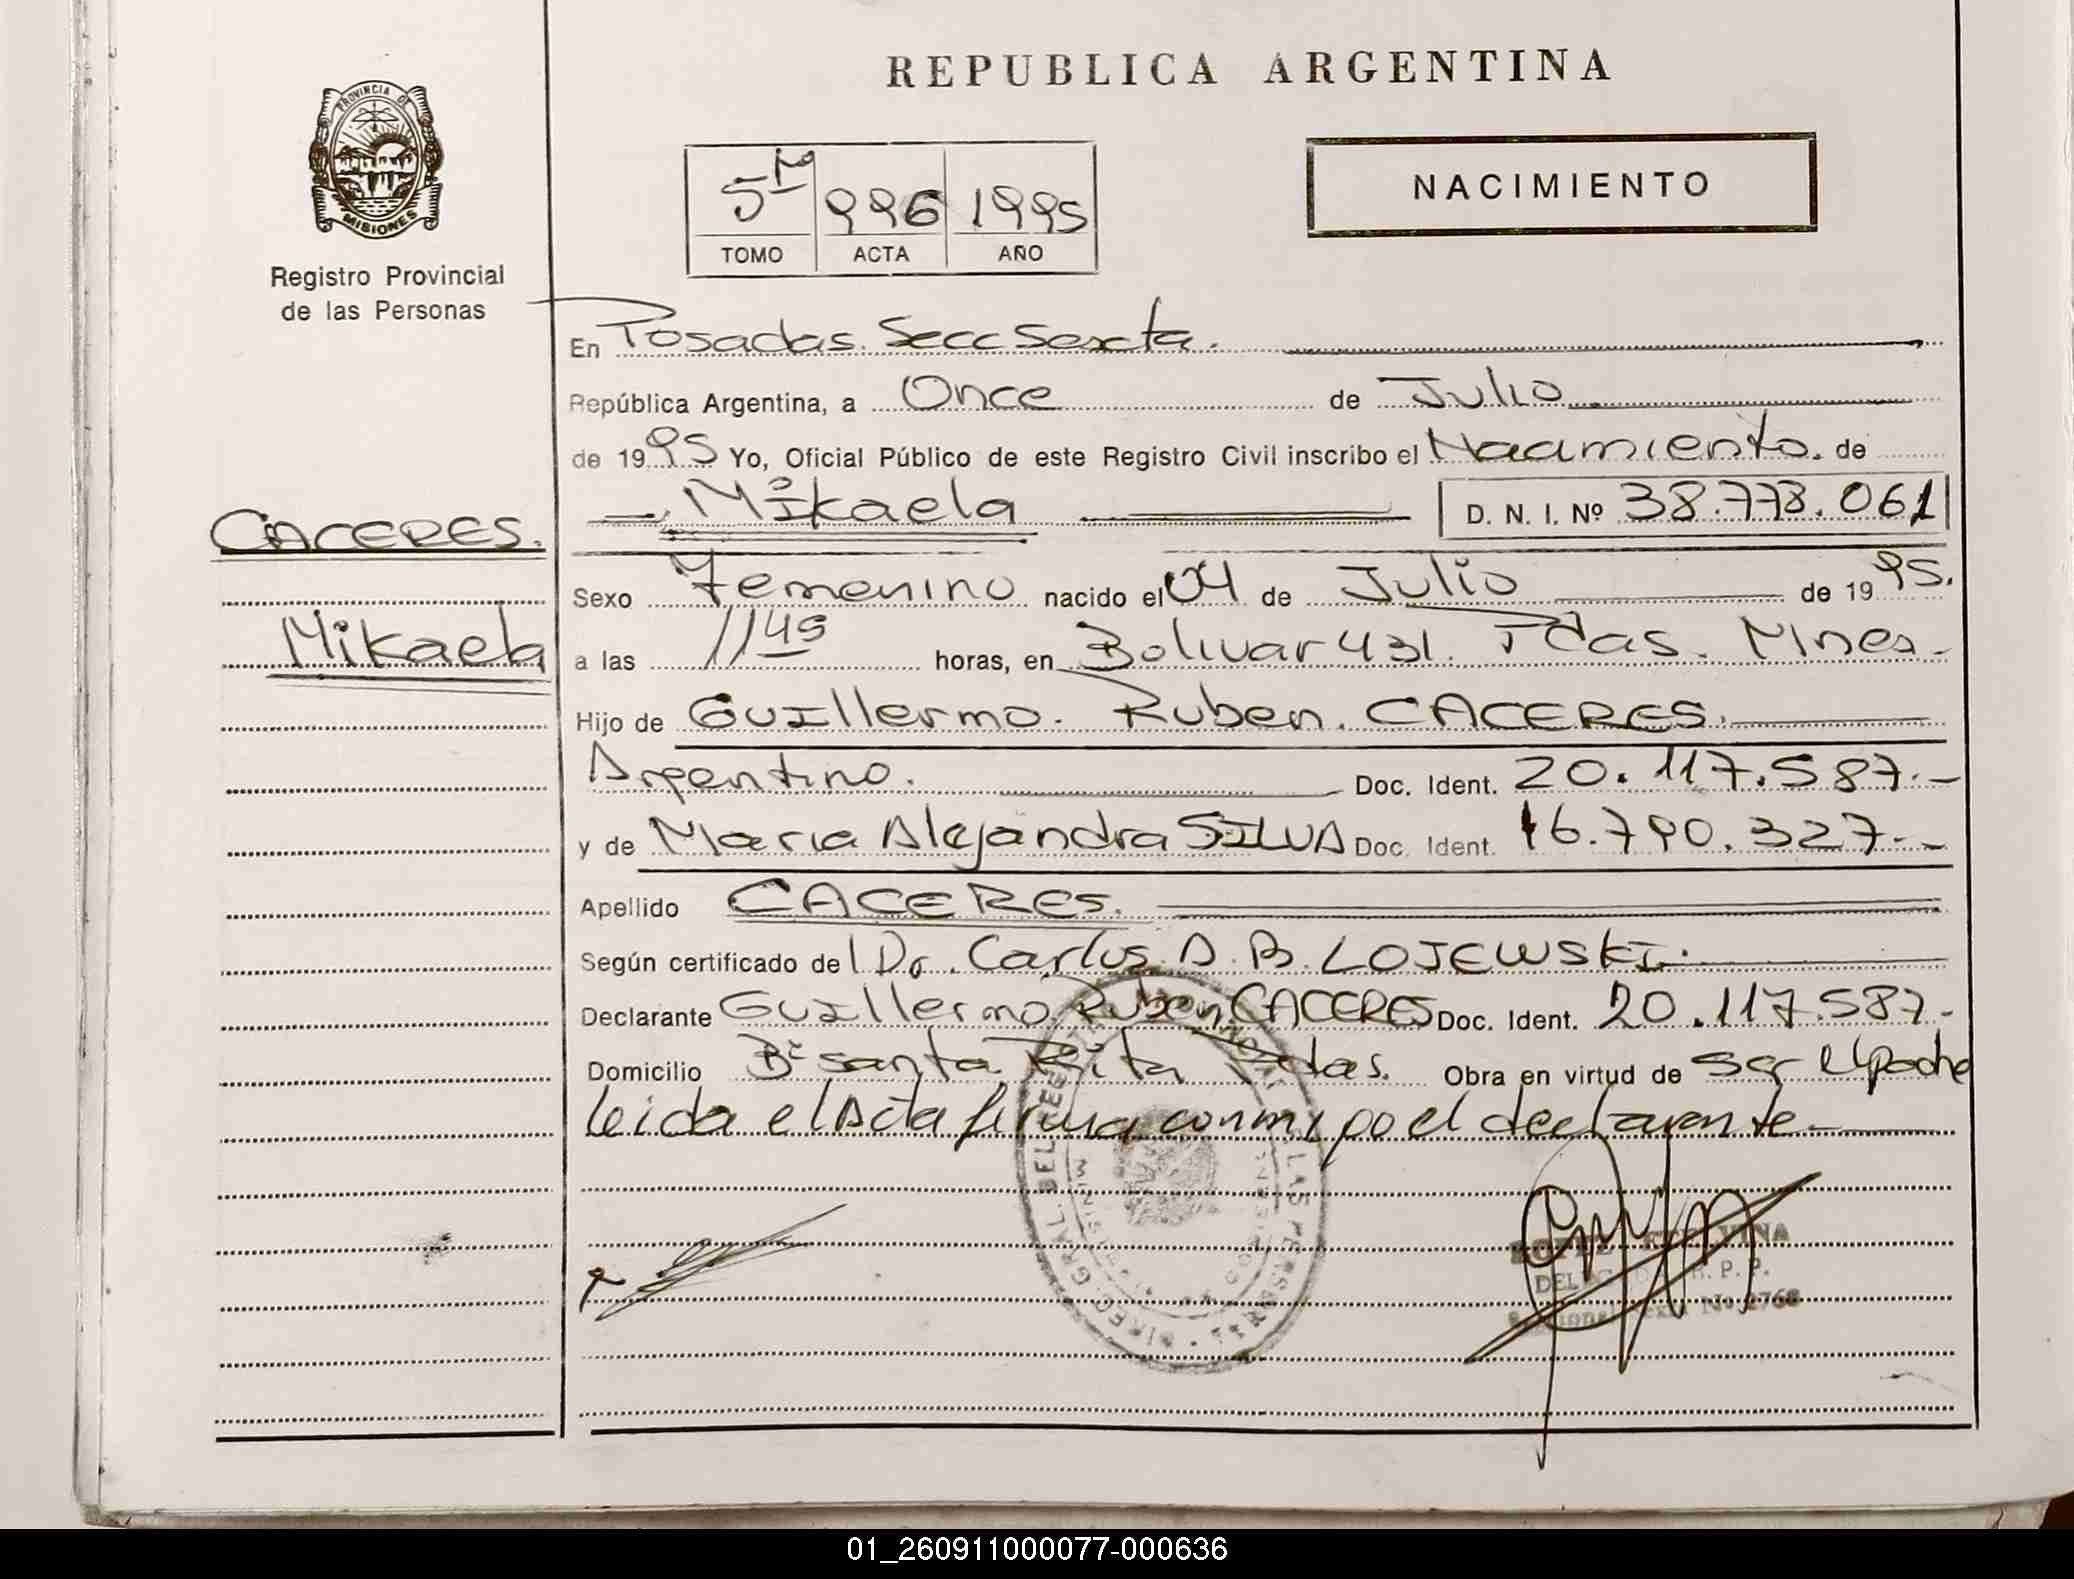 REPUBLICA ARGENTINA
PROVINCIA DE
MISIONES
Registro Provincial
de las Personas
5 M 996 1995
TOMO ACTA AÑO
NACIMIENTO
En Posadas. Secc Sexta.
República Argentina, a Once de Julio
de 1995 Yo, Oficial Público de este Registro Civil inscribo el Nacimiento. de
Mikaela D. N. I. Nº 38.778.061
CACERES.
Mikaela
Sexo Femenino nacido el 04 de Julio de 1995.
a las 11 45 horas, en Bolivar 431. Pdas. Mnes.
Hijo de Guillermo. Ruben. CACERES.
Argentino. Doc. Ident. 20.117.587.-
y de Maria Alejandra SILVA Doc. Ident. 16.790.327.-
Apellido CACERES.
Según certificado del Dr. Carlos A. B. LOJEWSKI.
Declarante Guillermo Ruben CACERES Doc. Ident. 20.117.587.-
Domicilio Bº Santa Rita Pdas. Obra en virtud de ser el padre
leida el Acta firma conmigo el declarante
DIREC. GRAL. DEL
LAS PERSONAS
R. P. P.
Nº 2768
01_260911000077-000636